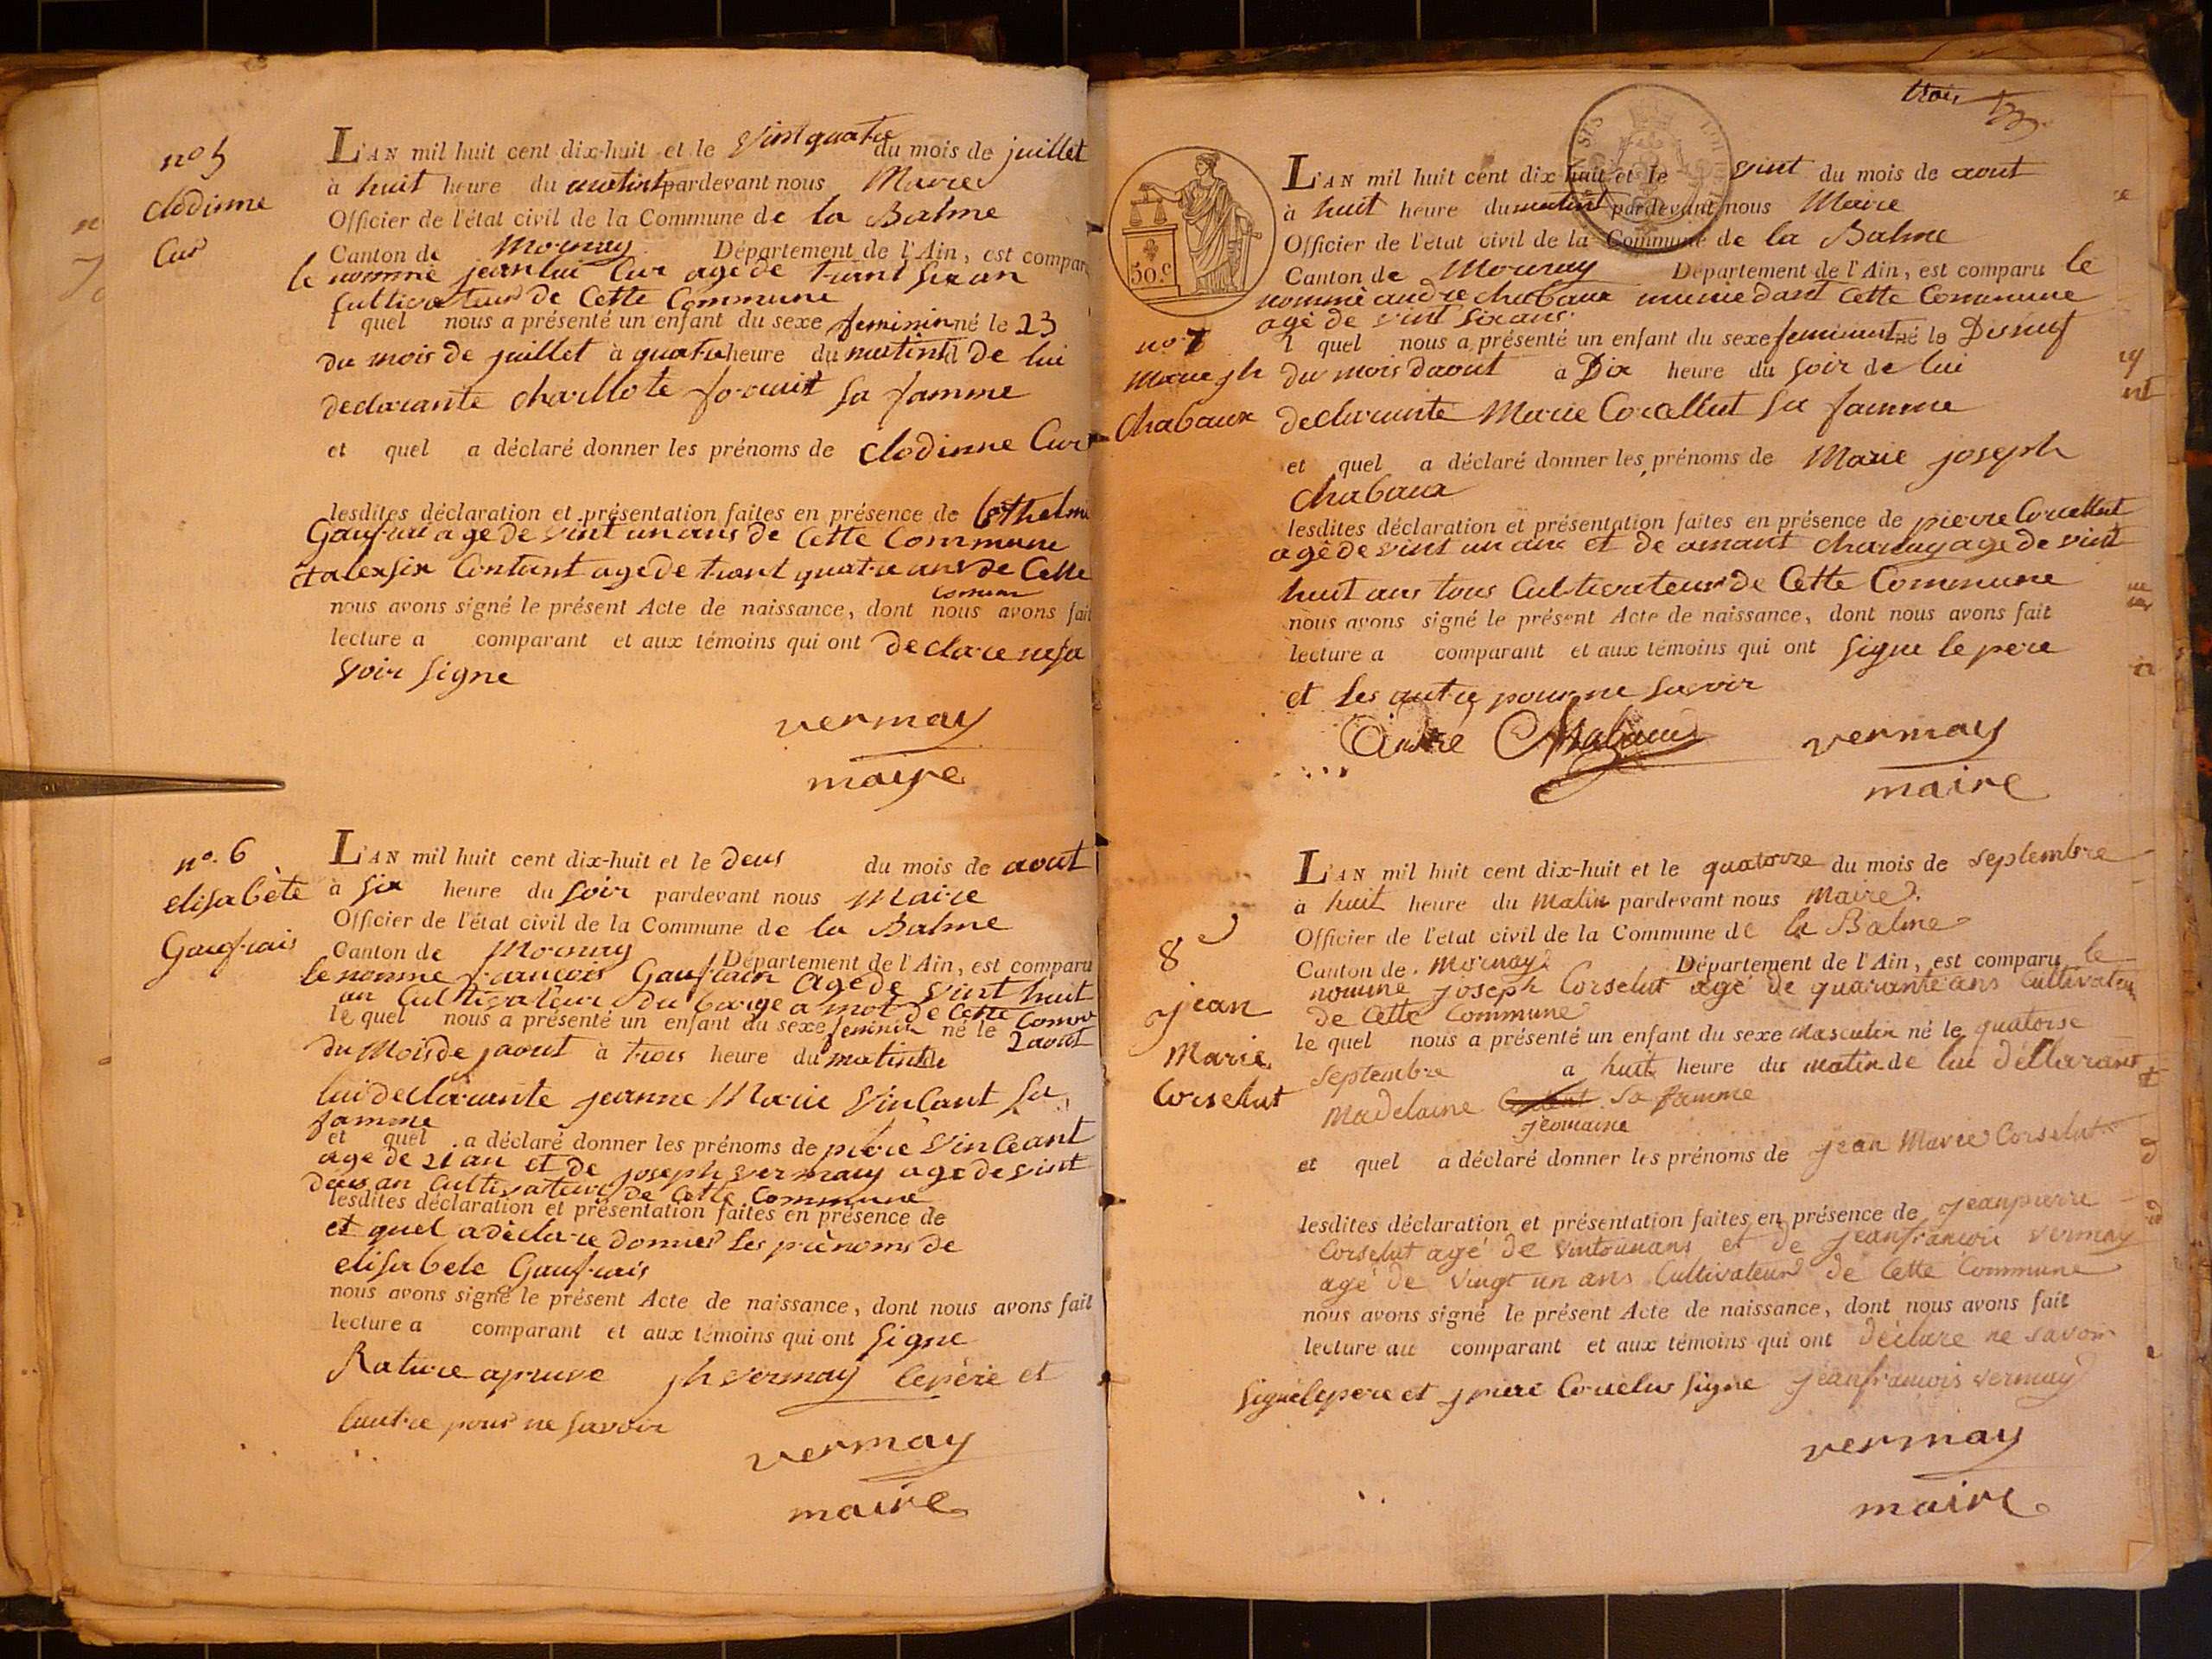 no 5
clodinne
Cur
L'AN mil huit cent dix-huit et le vint quatre du mois de juillet
à huit heure du matint pardevant nous Maire
Officier de l'état civil de la Commune de la Balme
Canton de Mornay Département de l'Ain, est compar
le nommé jean lui Cur age de trant six an
Cultivateur de Cette Commune
l quel nous a présenté un enfant du sexe feminin né le 23
du mois de juillet à quatre heure du matint d de lui
declarante charllote sa famme
et quel a déclaré donner les prénoms de clodinne Cur
lesdites déclaration et présentation faites en présence de
Gaufrai age de vint un ans de Cette Commune
et alexsix Contant age de trant quatre ans de Cette
Comun
nous avons signé le présent Acte de naissance, dont nous avons fait
lecture a comparant et aux témoins qui ont declare ne sa
voir signe
vermay
maire
no. 6
elisabète
Gaufrais
L'AN mil huit cent dix-huit et le deus du mois de aout
à six heure du soir pardevant nous Maire
Officier de l'état civil de la Commune de la Balme
Canton de Mornay Département de l'Ain, est comparu
le nommé françois Gaufrain age de vint huit
an Cultivateur du de Cette Comu
le quel nous a présenté un enfant du sexe feminin né le 2 aout
du Mois de jaout à trois heure du matint de
lui declarante jeanne Marie vincant sa
famme
et quel a déclaré donner les prénoms de piere vinceant
age de 21 an et de joseph vermay age de vint
deus an Cultivateur de Cette Commune
lesdites déclaration et présentation faites en présence de
et quel a déclare donner les prènoms de
elisabete Gaufrais
nous avons signé le présent Acte de naissance, dont nous avons fait
lecture a comparant et aux témoins qui ont signe
Rature apruve jh vermay le père et
lautre pour ne savoir
vermay
maire
trois
50.c
L'AN mil huit cent dix huit et le vint du mois de aout
à huit heure du matint pardevant nous Maire
Officier de l'état civil de la Commune de la Balme
Canton de Mournay Département de l'Ain, est comparu le
nommé andre chabaux dant Cette Commune
agé de vint six ans.
no. 7
Marie jh
chabaux
l quel nous a présenté un enfant du sexe feminint né le Disneuf
du mois daout à Dix heure du soir de lui
declarante Marie Corcellut sa famme
et quel a déclaré donner les prénoms de Marie joseph
chabaux
lesdites déclaration et présentation faites en présence de pierre Corcellut
agé de vint un ans et de amant charnay age de vint
huit ans tous Cultivateur de Cette Commune
nous avons signé le présent Acte de naissance, dont nous avons fait
lecture a comparant et aux témoins qui ont signe le pere
et les autre pour ne savoir
Andre Chabaux vermay
maire
8
jean
Marie
Corselut
L'AN mil huit cent dix-huit et le quatorze du mois de septembre
à huit heure du Matin pardevant nous Maire
Officier de l'état civil de la Commune de la Balme
Canton de Mornay Département de l'Ain, est comparu le
nomme joseph Corselut agé de quarante ans Cultivateur
de Cette Commune
le quel nous a présenté un enfant du sexe Masculin né le quatorse
septembre a huit heure du matin de lui déllarant
Madelaine sa famme
jermaine
et quel a déclaré donner les prénoms de jean Marie Corselut
lesdites déclaration et présentation faites en présence de jean pierre
Corselut agé de vintounans et de jean francois vermay
agé de vingt un ans Cultivateur de Cette Commune
nous avons signé le présent Acte de naissance, dont nous avons fait
lecture au comparant et aux témoins qui ont déclare ne savoir
signé le pere et j piere Corcelus signe jeanfrancois vermay
vermay
maire